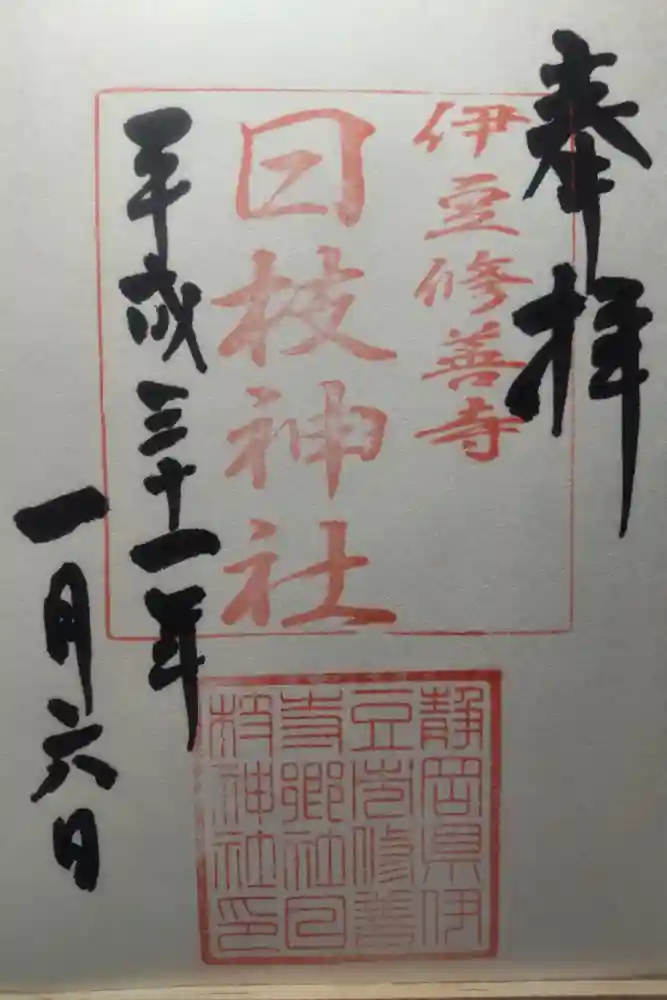 奉拝
伊豆修善寺
日枝神社
平成三十一年
一月六日
静岡県伊
豆市修善
寺郷社日
枝神社印